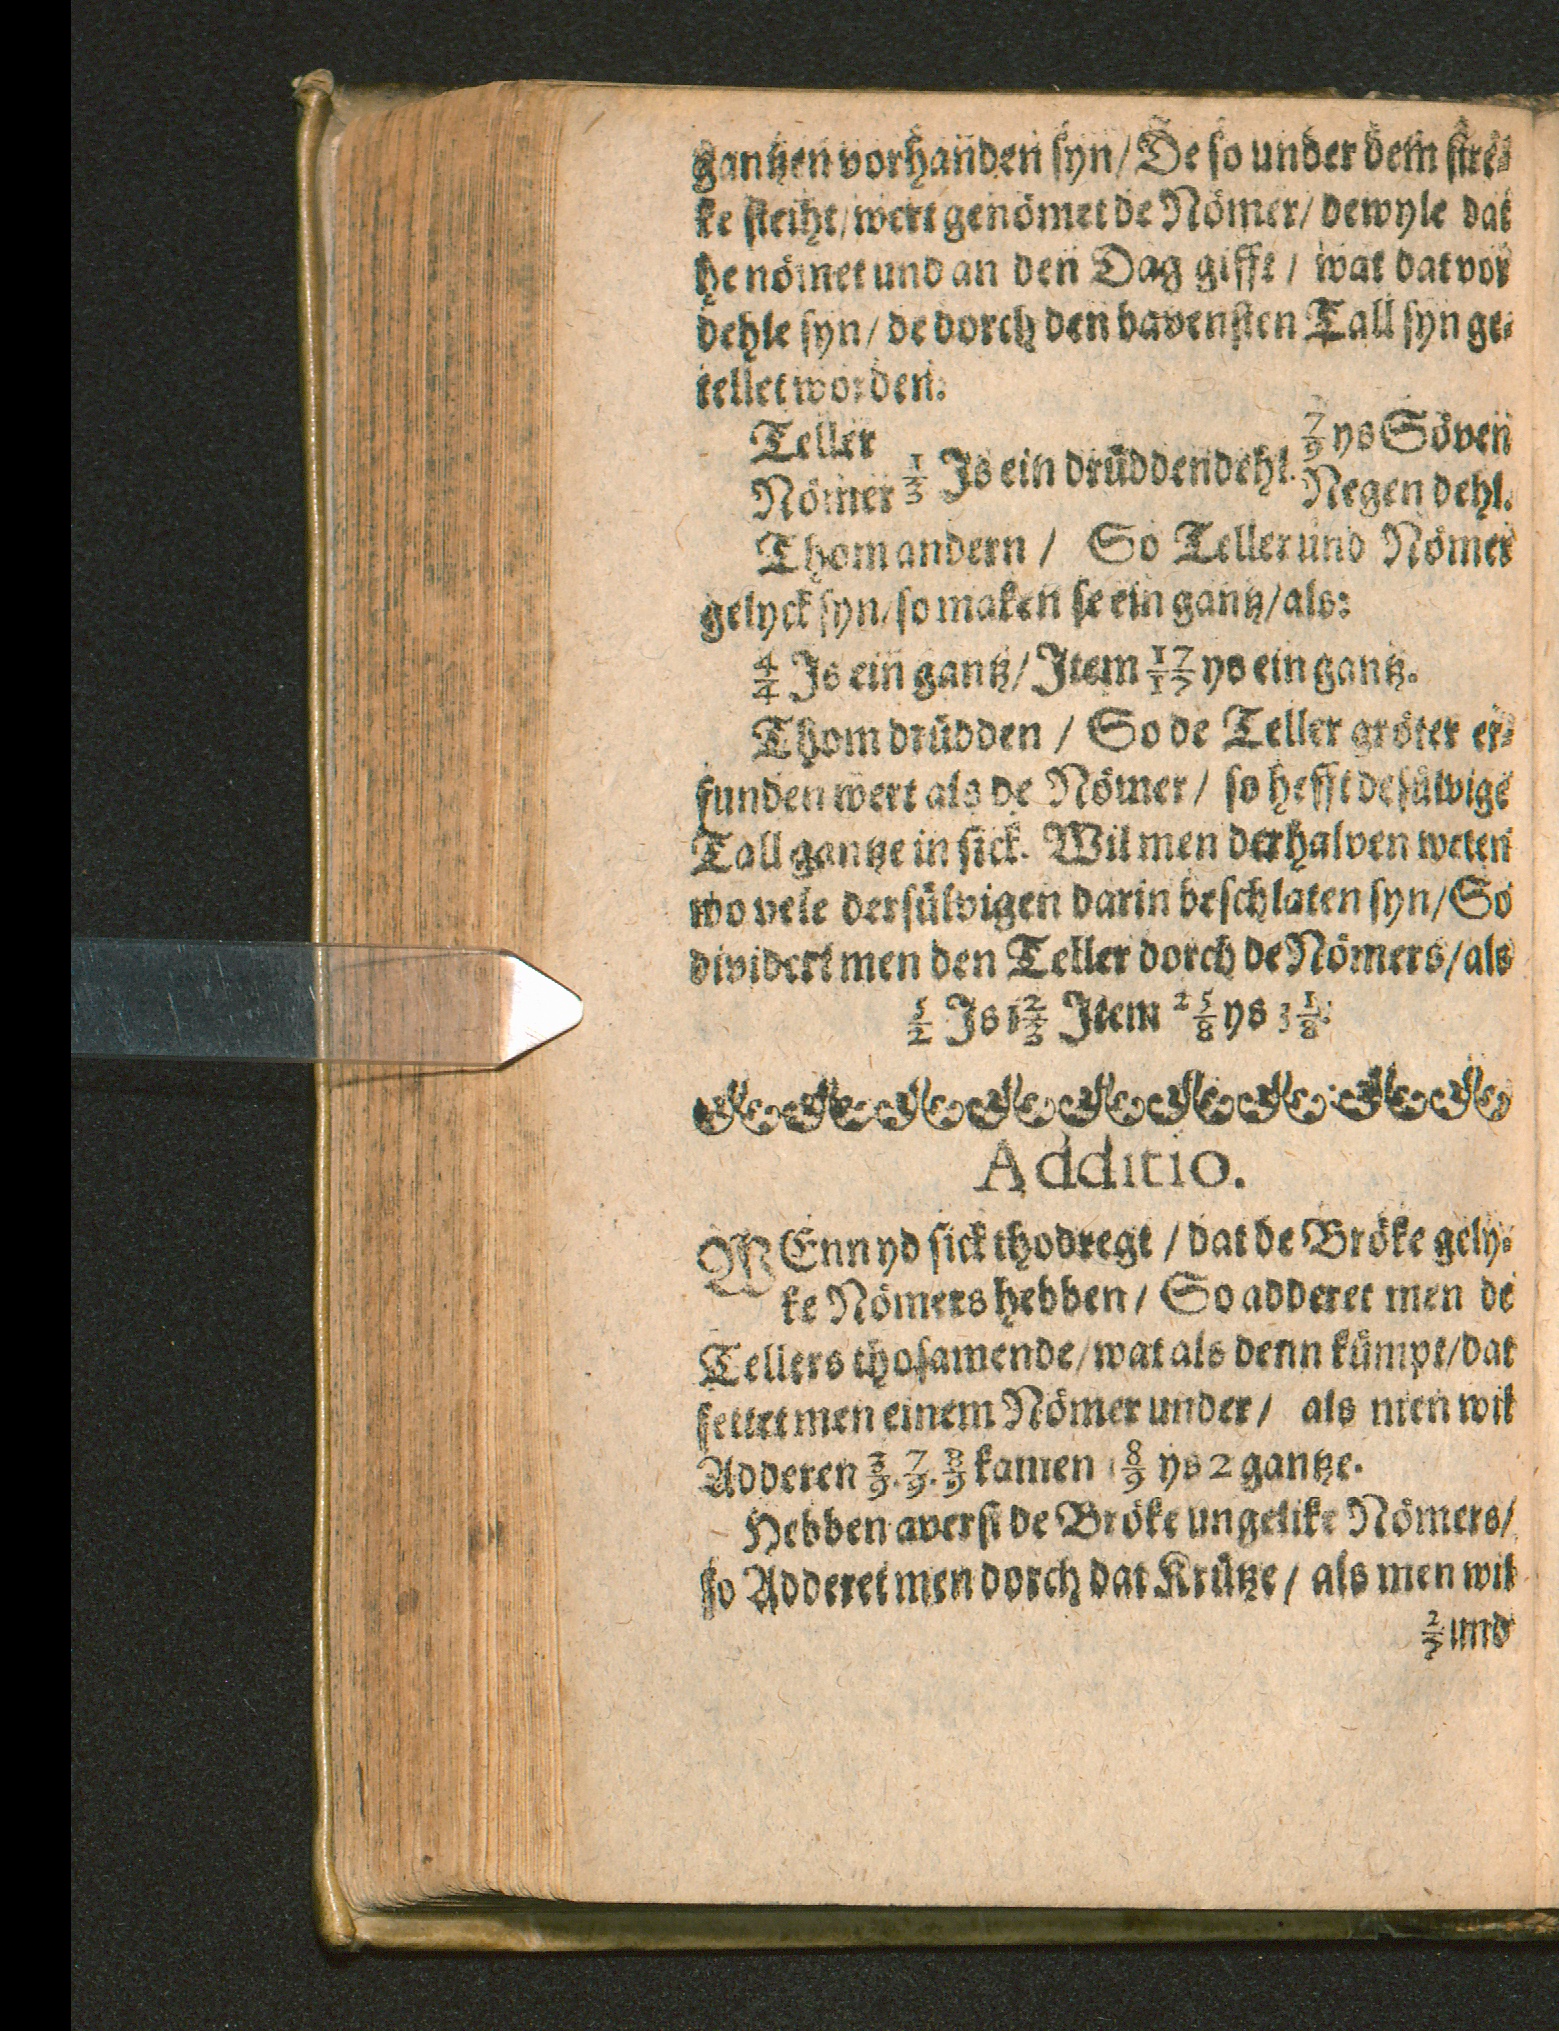 gantzen vorhanden syn/ De so under dem stre-
ke steiht/ wert genömet de Nömer/ dewyle dat
he nömet und an den Dag gifft / wat dat vor
dehle syn/ de dorch den bavensten Tall syn ge-
tellet worden:
Teller
Nömer 1/3 Is ein drüddendehl. 7/9 ys Söven
Negen dehl.
Thom andern / So Teller und Nömer
gelyck syn/ so maken se ein gantz/ als:
4/4 Is ein gantz/ Item 17/17 ys ein gantz.
Thom drüdden / So de Teller gröter er-
funden wert als de Nömer / so hefft desülvige
Tall gantze in sick. Wil men derhalven weten
wo vele dersülvigen darin beschlaten syn/ So
dividert men den Teller dorch de Nömers/ als
Is Item 25/8 ys 3 1/8.
Additio.
WEnn yd sick thodregt / dat de Bröke gely-
ke Nömers hebben / So adderet men de
Tellers thosamende/ wat als denn kümpt/ dat
settet men einem Nömer under / als men wil
Adderen 3/9. 7/9. 8/9 kamen 18/9 ys 2 gantze.
Hebben averst de Bröke ungelike Nömers/
so Adderet men dorch dat Krütze / als men wil
und